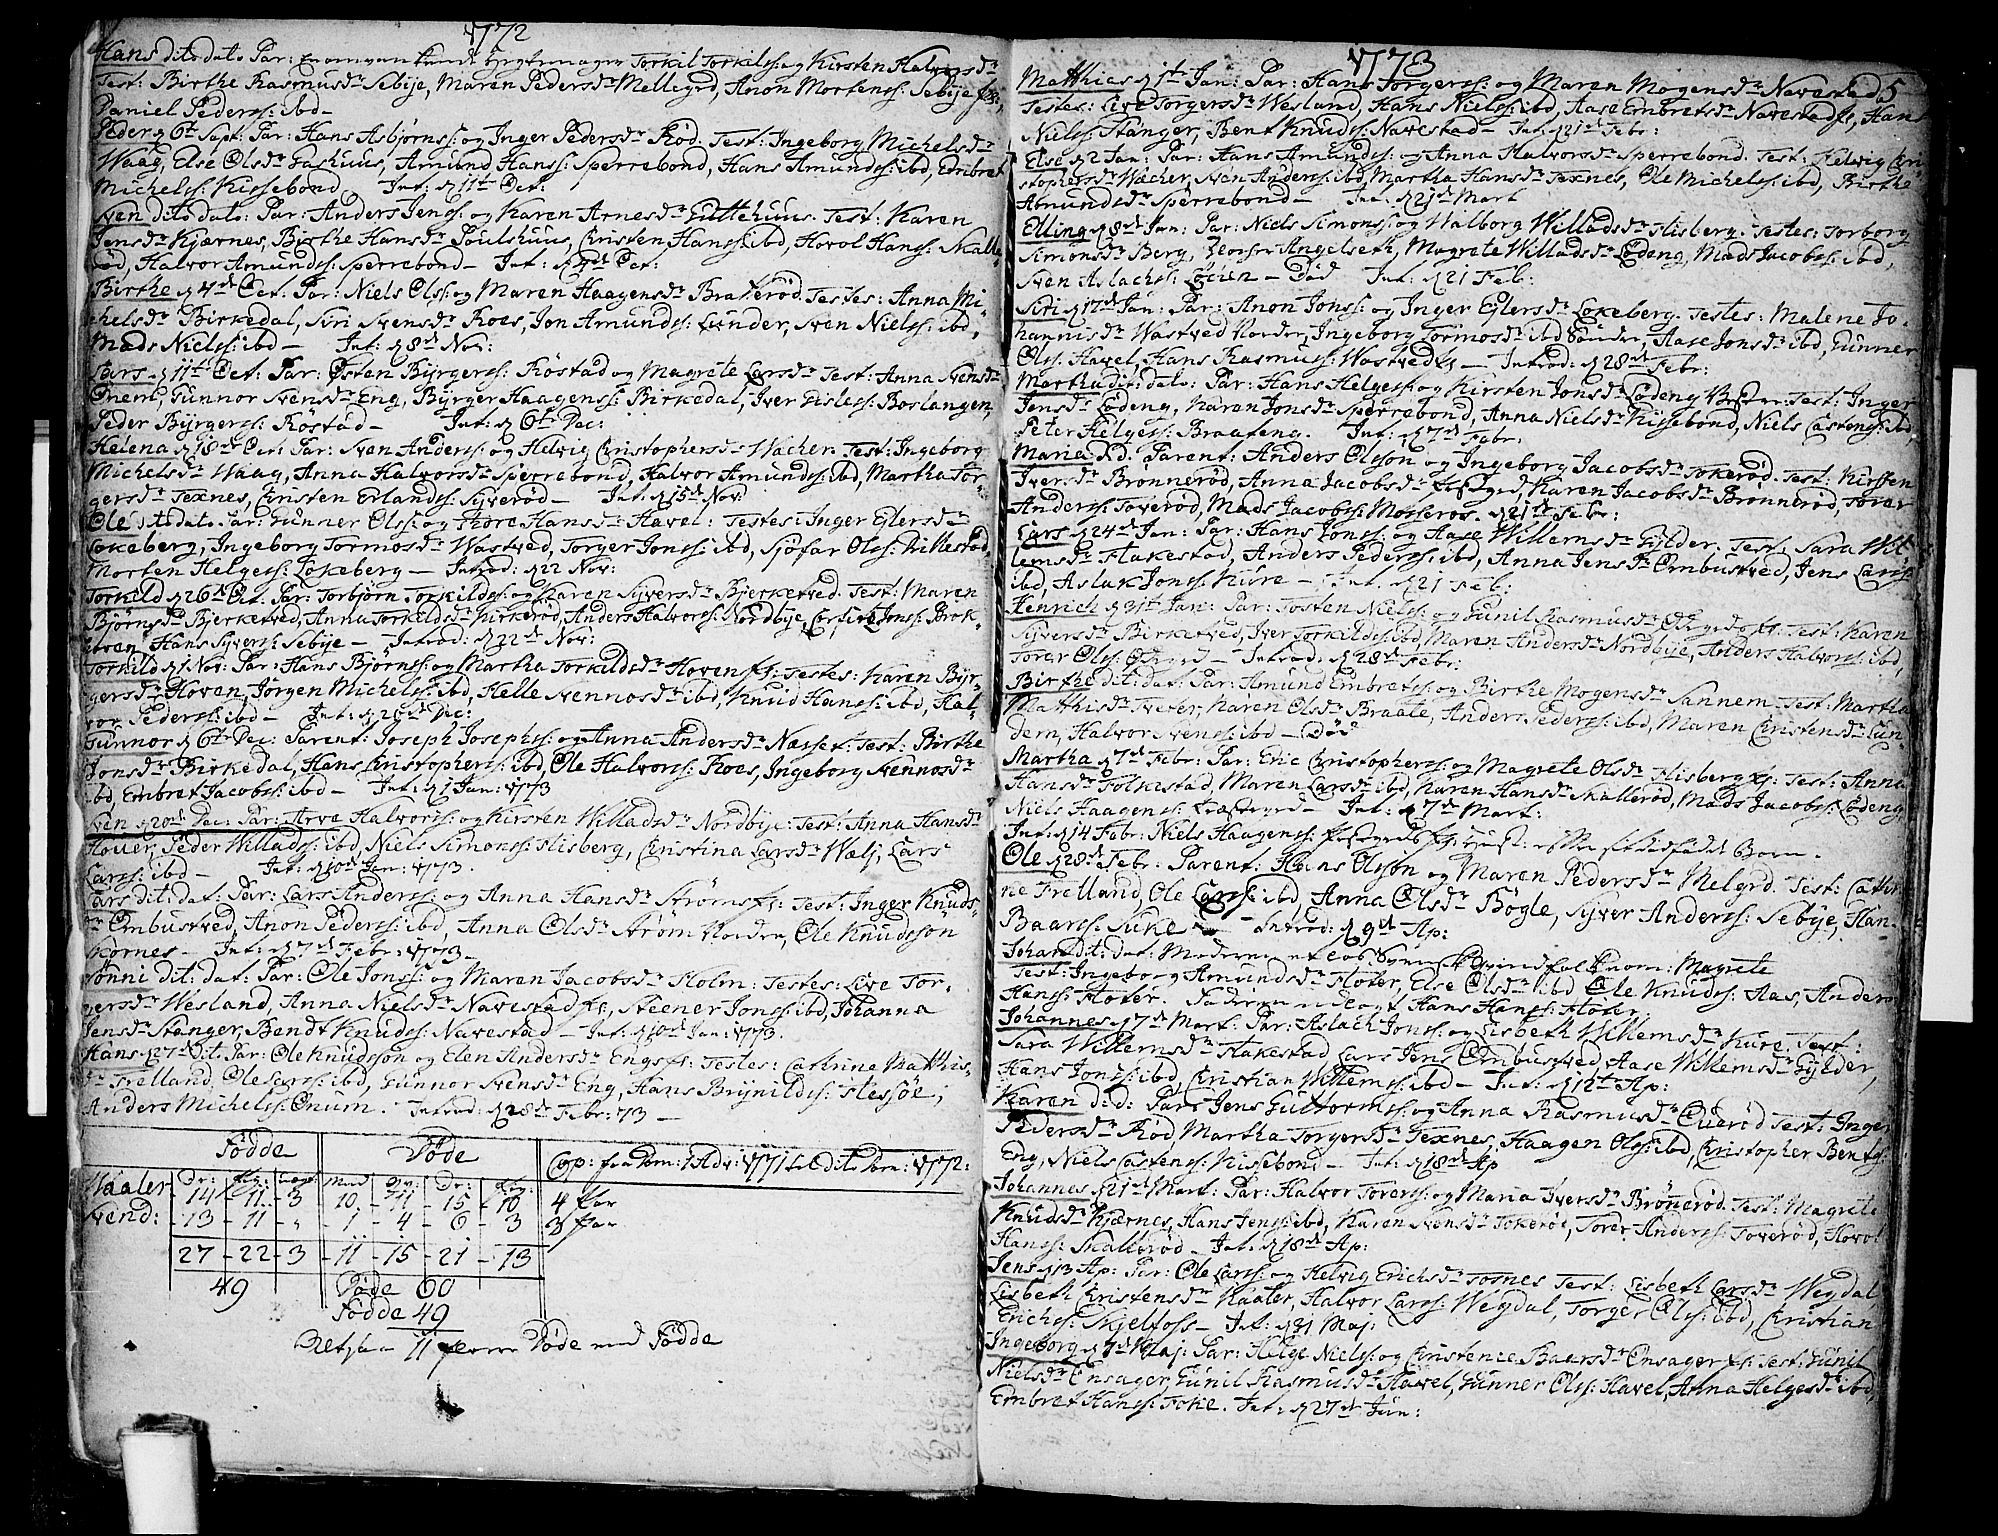 1772
Hans dito dato Par: Torkil Torkilss: og Kirsten Halvorsdr
Test: Birthe Rasmusdr Sebÿe, Maren Pedersdr Mellegrd, Anon Mortenss: Sebÿe
Daniel Pederss: ibd-
Peder d 6t Sept: Par: Hans Asbjørnss: og Inger Pedersdr Rød. Test: Ingeborg Michelsdr
Waag, Else Olsdr Gashuus, Amund Hanss: Sperrebond, Hans Amundss: ibd, Embret
Michelss: Kissebond. Int: d 11t Oct:
Sven dito dato: Par: Anders Jenss: og Karen Arnesdr Guttehuus. Test: Karen
Jensdr Kjærnes, Birthe Hansdr Poulshuus, Cristen Hanss: ibd, Hovol Hanss: Skalle-
rød, Halvor Amundss: Sperrebond- Int: d 4d Oct:
Birthe d 4d Oct: Par: Niels Olss: og Maren Haagensdr Braterød. Testes: Anna Mi-
chelsdr Birkedal, Siri Svensdr Roes, Jon Amundss: Lunder, Sven Nielss: ibd,
Mads Nielss: ibd- Int: d 8d Nov:
Lars d 11t Oct: Par: Østen Byrgerss: Røstad og Magrete Larsdr Test: Anna Svensdr
Onem, Gunnor Svensdr Eng, Byrger Haagenss: Birkedal, Iver Gisless: Boslangen,
Peder Byrgerss: Røstad- Int: d 6t Dec:
Helena d 18d Oct: Par: Sven Anderss: og Helvig Christophersdr Wacher. Test: Ingeborg
Michelsdr Waag, Anna Halvorsdr Sperrebond, Halvor Amundss: ibd, Martha Tor-
gersdr Texnes, Cristen Erlandss: Syverød- Int: d 15d Nov:
Ole dito dato. Par: Gunner Olss: og Thore Hansdr Havel: Testes: Inger Eylersdr
Lokeberg, Ingeborg Tormosdr Wastved, Torger Jonss: ibd, Sjøfar Olss: Rikestad,
Morten Helgess: Lokeberg- Introd: d 22 Nov:
Torkild d 26d Oct: Par: Torbjørn Torkildss: og Karen Syversdr Bjerketved. Test: Maren
Bjørnsdr Bjerketved, Anna Torkildsdr Kirkerød, Anders Halvorss: Nordbÿe, Jonss: Brok-
Hans Syverss: Sebÿe- Introd: d 22d Nov:
Torkild d 1 Nov: Par: Hans Bjørnss: og Martha Torkildsdr Hoven Testes: Karen Byr-
gersdr Hoven, Jørgen Michelss: ibd, Helle Svennosdr ibd, Knud Hanss: ibd, Hal-
vor Pederss: ibd- Int: d 20d Dec:
Gunnor d 6t Dec: Parent: Joseph Josephss: og Anna Andersdr Næsset: Test: Birthe
Jonsdr Birkedal, Hans Cristopherss: ibd, Ole Halvorss: Roes, Ingeborg Svennosdr
ibd, Embret Jacobss: ibd- Int: d 1 Jan: 1773
Sven d 20d Dec: Par: Arve Halvorss: og Kirsten Willadsdr Nordbÿe: Test: Anna Hansdr
Houer, Peder Willadss: ibd, Niels Simonss: Flisberg, Cristina Larsdr Walj, Lars
Larss: ibd- Int: d 10d Jan: 1773.
Lars dit: dat: Par: Lars Anderss: og Anna Hansdr Strøm Test: Inger Knuds-
dr Ombustved, Anon Pederss: ibd, Anna Olsdr Strøm Norden, Ole Knudssøn
Kornes- Int: d 7d Febr: 1773-
Sönni dit: dat: Par: Ole Jonss: og Maren Jacobsdr Holm: Testes: Live Tor-
gersdr Wesland, Anna Nielsdr Navestad, Steener Jonss: ibd, Johanna
Jensdr Stanger, Bendt Knudss: Navestad- Int: d 10d Jan: 1773.
Hans d 27d dit. Par: Ole Knudsson og Elen Andersdr Eng Testes: Cathrine Matthis-
dr Frelland, Ole Larss: ibd, Gunnor Svensdr Eng, Hans Brynildss: Flessøe,
Anders Michelss: Onum. Introd: d 28d Febr: 73-
Fødde Døde Cop: fra Dom: 1 Adv: 1771 til dito Dom: 1772:
Dr: Mand Qv: Dr:
Waaler 14 11 3 10 11 15 10 4 Par
Svend: 13 11 " 1 4 6 3 3 Par
27 22 3 11 15 21 13
49 Døde 60
Fødde 49
11 Døde end Fødde
1773
5
Matthias d 1t Jan: Par: Hans Torgerss: og Maren Mogensdr Navestad
Testes: Live Torgersdr Wesland, Hans Nielss: ibd, Aase Embretsdr Navestad, Hans
Nielss: Stanger, Bent Knudss: Navestad- Int: d 21d Febr:
Else d 2 Jan: Par: Hans Amundss: og Anna Halvorsdr Sperrebond. Test: Helvig Cri-
stophersdr Wacher, Sven Anderss: ibd, Martha Hansdr Texnes, Ole Michelss: ibd, Birthe
Amundsdr Sperrebond- Int: d 21d Mart
Elling d 8d Jan: Par: Niels Simonss: og Walborg Willadsdr Flisberg. Testes: Torborg
Simonsdr Berg, Angelseth, Magrete Willadsdr Lødeng, Mads Jacobss: ibd,
Sven Aslachss: Löcien- Död Int: d 21 Feb:
Siri d 17d Jan: Par: Anon Jonss: og Inger Eylersdr Lokeberg. Testes: Malene Jo-
hannisdr Wastved Norder, Ingeborg Tormosdr ibd Sönder, Aase Jonsdr ibd, Gunner
Olss: Havel, Hans Rasmuss: Wastved- Introd: d 28d Febr:
Martha dit: dato: Par: Hans Helgess: og Kirsten Jonsdr Lødeng Test: Inger
Jensdr Lødeng, Karen Jonsdr Sperrebond, Anna Nielsdr Kissebond, Niels Castenss: ibd
Peter Helgess: Braateng. Int: d 7d Febr:
Maria d.d. Parent: Anders Olsson og Ingeborg Jacobsdr Tokerød. Test: Kirsten
Iversdr Brønnerød, Anna Jacobsdr Karen Jacobsdr Brønnerød, Torer
Anderss: Toverød, Mads Jacobss: Mosseros. d 21d Febr:
Lars d 24d Jan: Par: Hans Jonss: og Aase Willemsdr Gylder. Test: Sara Wil-
lemsdr Flakestad, Anders Pederss: ibd, Anna Jensdr Ombustved, Jens Larss:
ibd, Aslak Jonss: Kure- Int: d 21 Feb:
Henrich d 31t Jan: Par: Tosten Nielss: og Gunil Rasmusdr Test: Karen
Syversdr Birketved, Iver Torkildss: ibd, Maren Andersdr Nordbÿe, Anders Halvorss: ibd,
Torer Olss: - Introd: d 28d Febr:
Birthe dit: dat: Par: Amund Embretss: og Birthe Mogensdr Sannem. Test: Martha
Matthisdr Tveter, Karen Olsdr Braate, Anders Pederss: ibd, Maren Cristensdr Lun-
dem, Halvor Svenss: ibd- Död
Martha d 7d Febr: Par: Eric Christopherss: og Magrete Olsdr Flisberg Test: Anna
Hansdr Folkestad, Maren Larsdr ibd, Karen Hansdr Skallerød, Mads Jacobss: Lødeng,
Niels Haagenss: - Int: d 7d Mart:
Int: d 14 Febr: Niels Haagenss: Born.
Ole d 28d Febr: Parent: Hans Olsson og Maren Pedersdr Melgrd. Test: Cathri-
ne Frelland, Ole Larss: ibd, Anna Olsdr Bøgle, Syver Anderss: Sebÿe, Han-
Baarss: Suke- Introd: d 9d Ap:
Johan dit: dat: Moderen et løs Qvindfolk nom: Magrete
Test: Ingeborg Amundsdr Floter, Else Olsdr ibd Ole Knudss: Aas, Anders
Hanss: Floter. Faderen udlagt Hans Hanss: Floter
Johannes d 7d Mart: Par: Aslach Jonss: og Lisbeth Willemsdr Kure. Test:
Sara Willemsdr Flakestad, Lars Jens Ombustved, Aase Willemsdr Gylder,
Hans Jonss: ibd, Cristian Willemss: ibd- Int: d 12t Ap:
Karen d: d: Par: Jens Guttormss: og Anna Rasmusdr Test: Inger
Pedersdr Rød, Martha Torgersdr Texnes, Haagen Olss: ibd, Cristopher Bentss:
Eng, Niels Castenss: Kissebond- Int: d 18d Ap
Johannes d 21d Mart: Par: Halvor Torerss: og Maria Iversdr Brønerød. Test: Magrete
Knudsdr Kjærnes, Hans Jenss: ibd, Karen Svensdr Tokerød, Torer Anderss: Toverød, Hovol
Hanss: Skallerød- Int: d 18d Ap:
Jens d 13 Ap: Par: Ole Larss: og Helvig Erichsdr Tosnes Test: Lisbeth Larsdr Wegdal,
Lisbeth Cristensdr Kaaler, Halvor Larss: Wegdal, Torger Olss: ibd, Cristian
Erichss: Skjelfoss- Int: d 31 Maj:
Ingeborg d 7d Maj: Par: Helge Nielss: og Cristence Baarsdr Ensager Test: Gunil
Nielsdr Ensager, Gunil Rasmusdr Havel, Gunner Olss: Havel, Anna Helgesdr ibd,
Embret Hanss: Foke. Int: d 27d Jun: